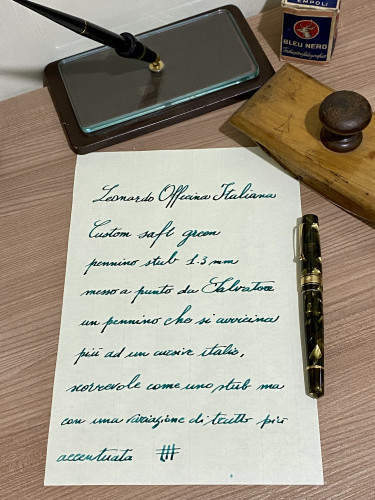 EMPOLI
BLEU NERO
Leonardo Officina Italiana
Custom saft green
pennino stub 1.3 mm
messo a punto da Salvatore
un pennino che si avvicina
più ad un cursive italic,
scorrevole come uno stub ma
con una variazione di tratto più
accentuata